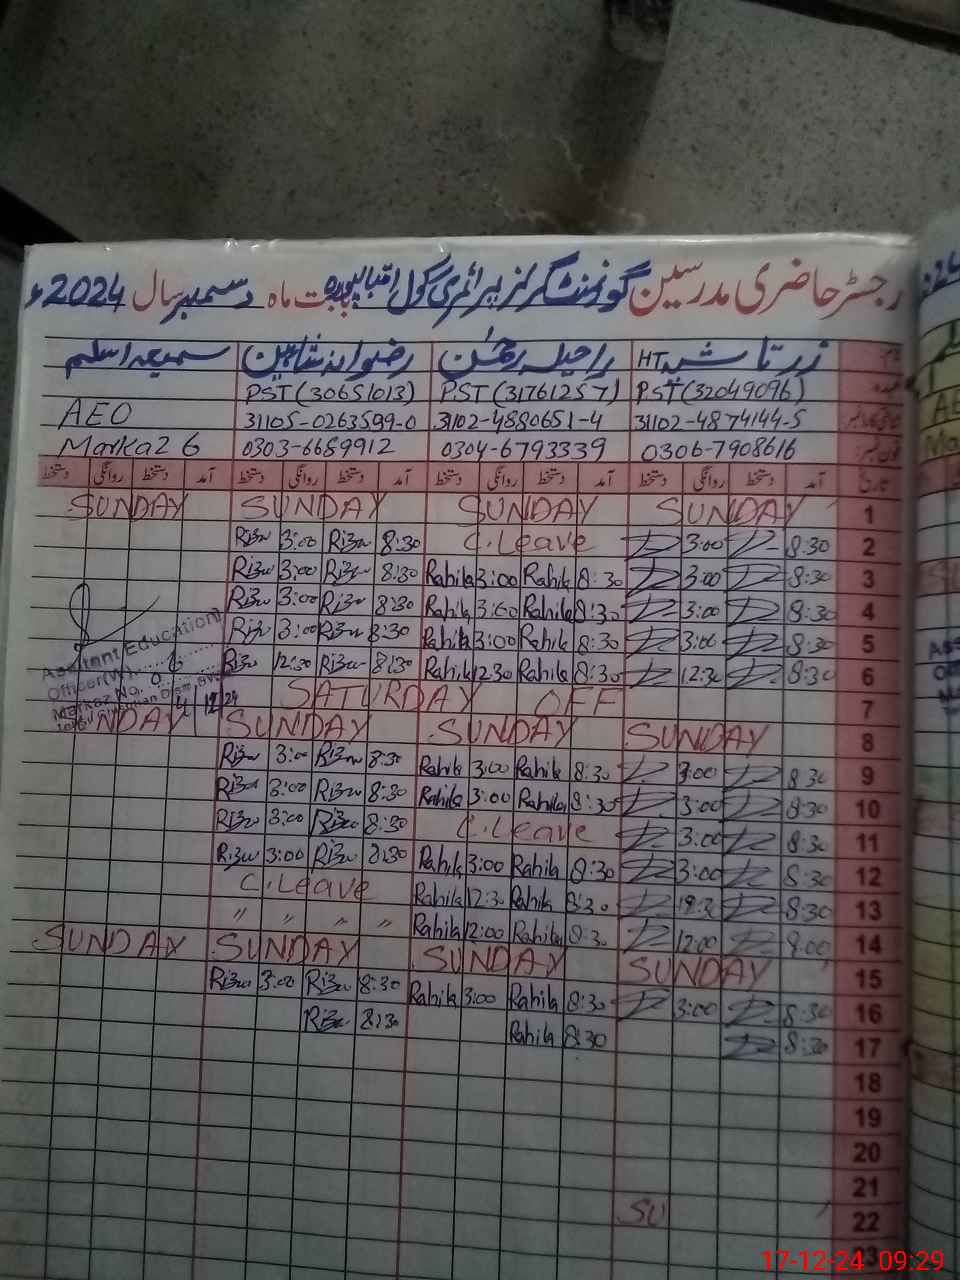 رجسٹر حاضری مدرسین گورنمنٹ گرلز پرائمری سکول بابت ماہ دسمبر سال 2024ء
زرتاشہ HT راحیلہ رضوانہ شاہین سمیعہ اسلم
PST (32049096) PST (31761257) PST (30651013)
31102-4874144-5 31102-4880651-4 31105-0263599-0 AEO
0306-7908616 0304-6793339 0303-6689912 Markaz 6
آمد دستخط روانگی دستخط آمد دستخط روانگی دستخط آمد دستخط روانگی دستخط آمد دستخط روانگی دستخط
1 SUNDAY SUNDAY SUNDAY SUNDAY
2 8:30 3:00 C.Leave 8:30 Rizw 3:00 Rizw
3 8:30 3:00 8:30 Rahila 3:00 Rahila 8:30 Rizw 3:00 Rizw
4 8:30 3:00 8:30 Rahila 3:00 Rahila 8:30 Rizw 3:00 Rizw
5 8:30 3:00 8:30 Rahila 3:00 Rahila 8:30 Rizw 3:00 Rizw
6 8:30 12:30 8:30 Rahila 12:30 Rahila 8:30 Rizw 12:30 Rizw
7 SATURDAY OFF
Assistant Education
Officer (W)
Markaz No. 6
4/12/24
8 SUNDAY SUNDAY SUNDAY SUNDAY
9 8:30 3:00 8:30 Rahila 3:00 Rahila 8:30 Rizw 3:00 Rizw
10 8:30 3:00 8:30 Rahila 3:00 Rahila 8:30 Rizw 3:00 Rizw
11 8:30 3:00 C.Leave 8:30 Rizw 3:00 Rizw
12 8:30 3:00 8:30 Rahila 3:00 Rahila 8:30 Rizw 3:00 Rizw
13 8:30 12:30 8:30 Rahila 12:30 Rahila C.Leave
14 9:00 12:00 8:30 Rahila 12:00 Rahila " " " "
15 SUNDAY SUNDAY SUNDAY SUNDAY
16 8:30 3:00 8:30 Rahila 3:00 Rahila 8:30 Rizw 3:00 Rizw
17 8:30 8:30 Rahila 8:30 Rizw
18
19
20
21
22 SU
17-12-24 09:29